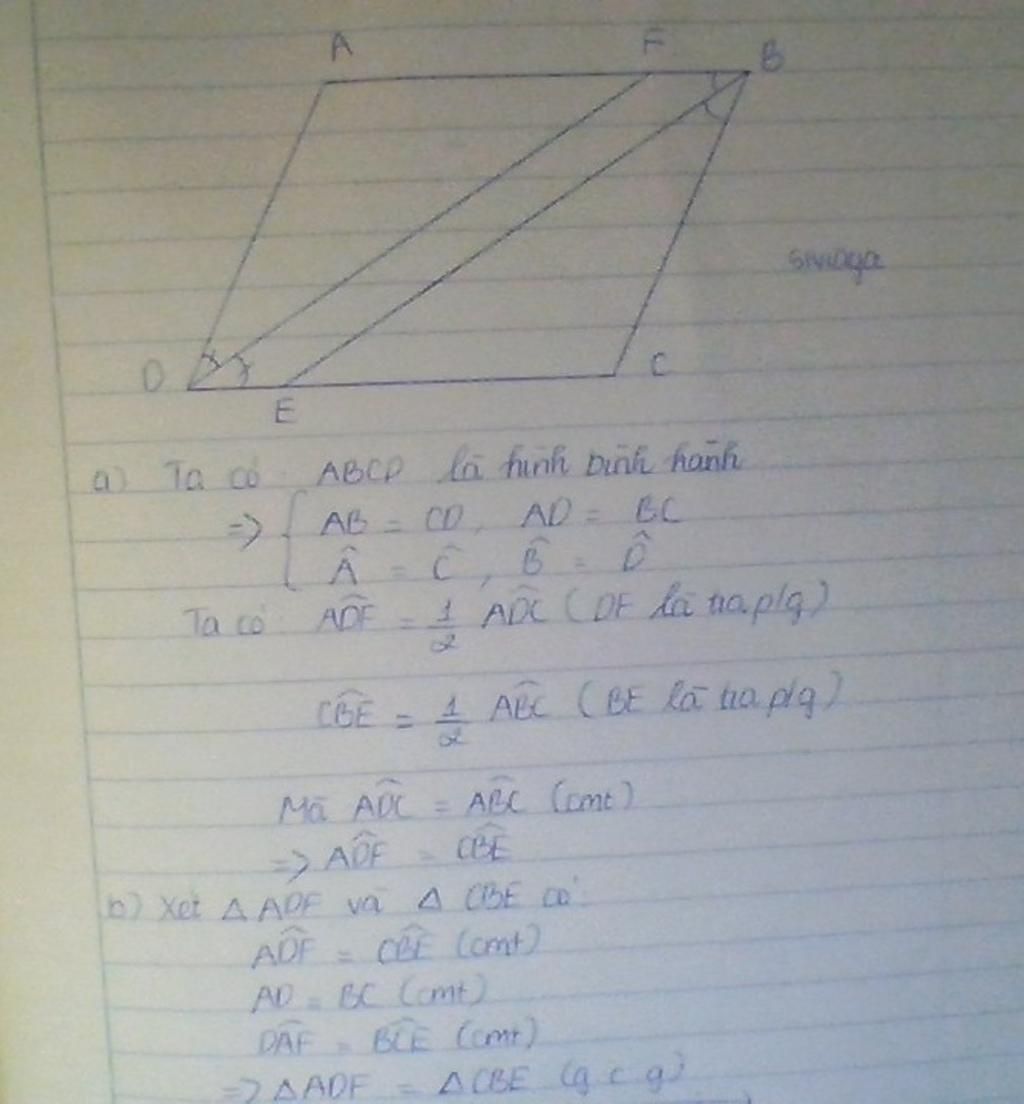 A F B
sivioga
D E C
a) Ta có: ABCD là hình bình hành
=> { AB = CD, AD = BC
Â = Ĉ, B̂ = D̂
Ta có: ADF̂ = 1/2 ADĈ (DF là tia p/g)
CBÊ = 1/2 ABĈ (BE là tia p/g)
Mà ADĈ = ABĈ (cmt)
=> ADF̂ = CBÊ
b) Xét △ ADF và △ CBE có:
ADF̂ = CBÊ (cmt)
AD = BC (cmt)
DAF̂ = BCÊ (cmt)
=> △ADF = △CBE (g c g)